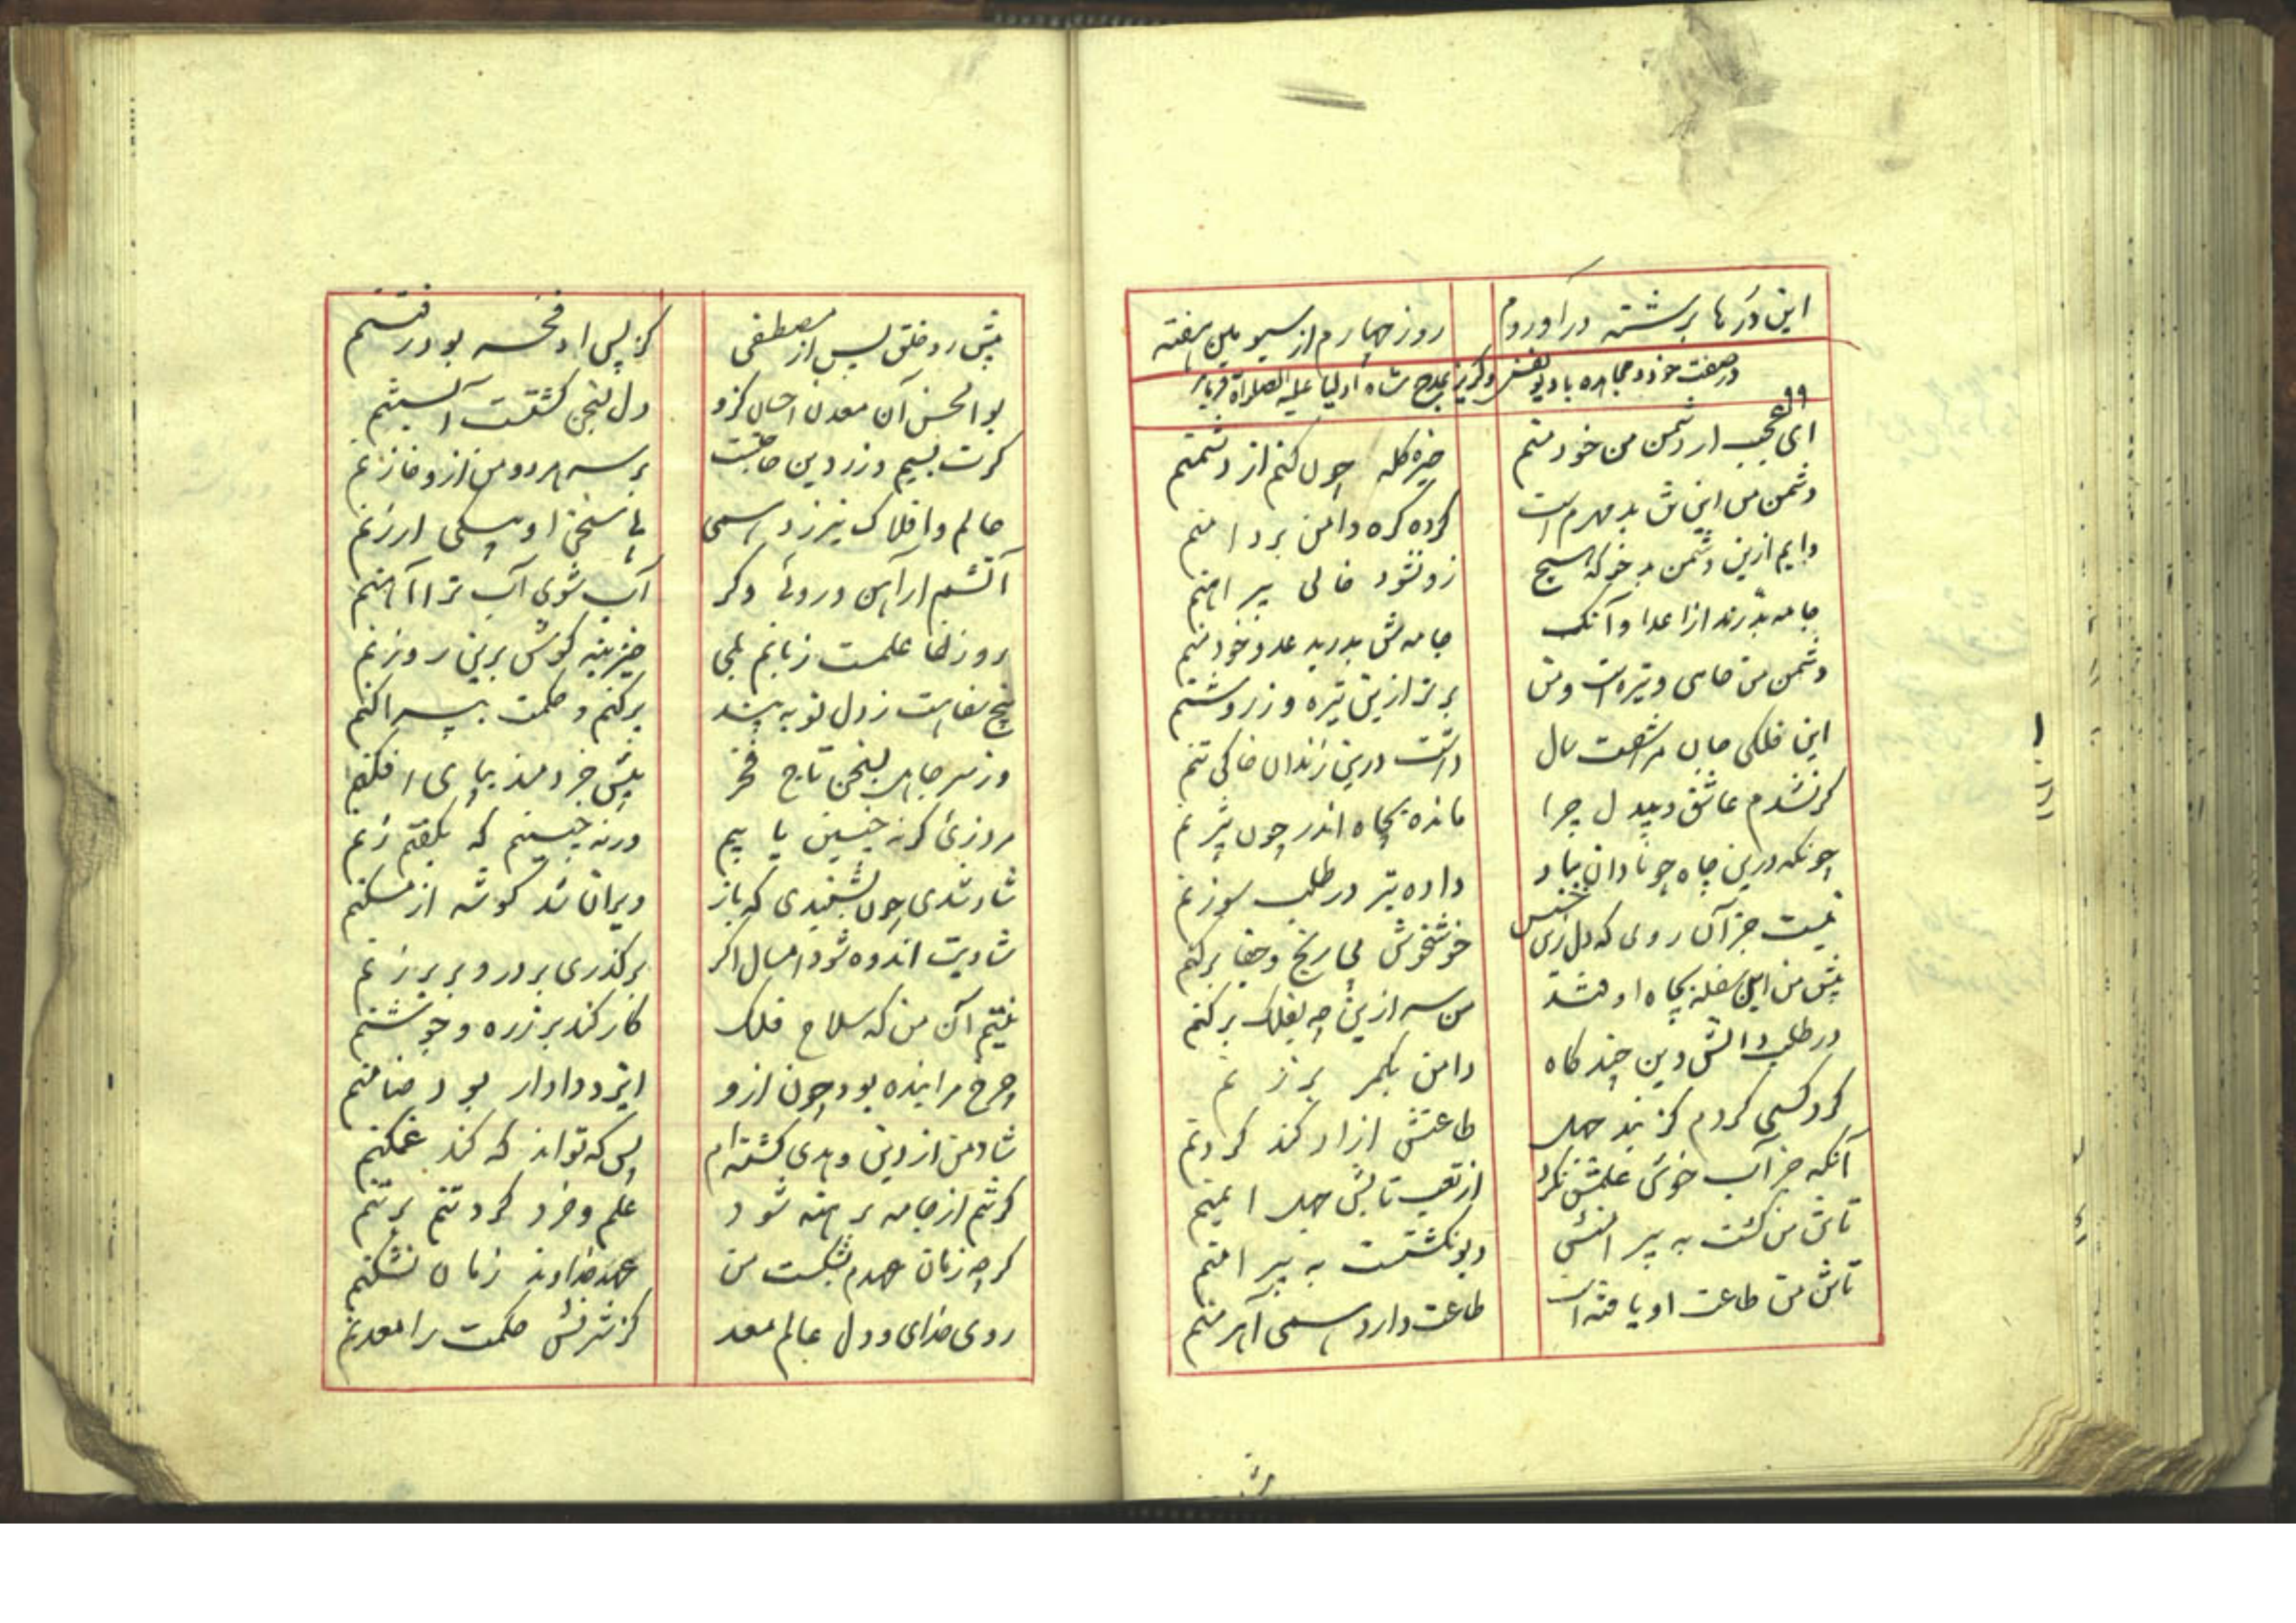 این دُرها برشته درآوردم روز چهارم از سیومین هفته
در صفت خود و مجاهده با دیو نفس و کریز بمدح شاه اولیا علیه الصلواة
۹۹
ای عجب ار دشمن من خود منم خیره کله چون کنم از دشمنم
دشمن من این تن بد مهرم است کرده کره دامن بر دامنم
دایم ازین دشمن بدخو که هیچ زو نشود خالی پیراهنم
جامه بدّرند از اعدا وآنک جامه‌ش بدرید عدو خود منم
دشمن من خاکی و تیره است ومن برتر ازین تیره وزر وشنم
این فلکی جان مرا شصت سال داشت درین زندان خاکی تنم
کر نشدم عاشق وبیدل چرا مانده بچاه اندر چون بیژنم
چونکه درین چاه چو نادان بباد داده تبر در طلب سوزنم
نیست جز آن روی که دل زین خسیس خوشخوش بی رنج وجفا برکنم
پیش من این سفله بچاه اوفتد من سر ازین چه بفلک برکنم
در طلب دانش ودین چند کاه دامن بکمر برزنم
کرد کسی کردم کز بند جهل طاعتش ازاد کند کردنم
آنکه جز آب خوش علمش نکرد از تعب تابش جهل ایمنم
تاش من کشت به پیرامنش دیو نکشتست به پیرامنم
تاش من طاعت او یافته است طاعت دارد سمی آهرمنم
پیش رو خلق پس از مصطفی کز پس او فخر بود رفتنم
بوالحسن آن معدن احسان کزو دل بسخن کشتست آبستنم
کرت بسیم وزر دین حاجتست بر سر هر دو من ازو خازنم
عالم وافلاک نیرزد همی با سخن او بیکی ارزنم
آتشم ار آهن وروئی وکر آب شوی آب ترا آهنم
روز خطا علمت زبانم بلی خیز بنه کوش برین روزنم
بیخ سفاهت زدل تو به پند برکنم و حکمت بپراکنم
وز سر جاهل بسخن تاج فخر پیش خردمند بپای افکنم
مروزئ کرنه چنین یابیم ورنه چنینم که بکفتم زنم
شاد شدی چون بشنیدی که باز ویران شد کوشه از مسکنم
شادیت اندوه شود امسال اکر برکذری بر در وبر برزنم
نیتم آن من که سلاح فلک کار کند بر زره وجوشنم
چرخ مرا بنده بود چون ازو ایزد دادار بود ضامنم
شاد من از دین وهدی کشته‌ام پس که تواند که کند غمکنم
کر تنم از جامه برهنه شود علم وخرد کرد تنم برتنم
کرچه زمان عهدم بشکست من عهد خداوند زمان نشکنم
روی خدای و دل عالم معد کز شرفش حکمت را معدنم